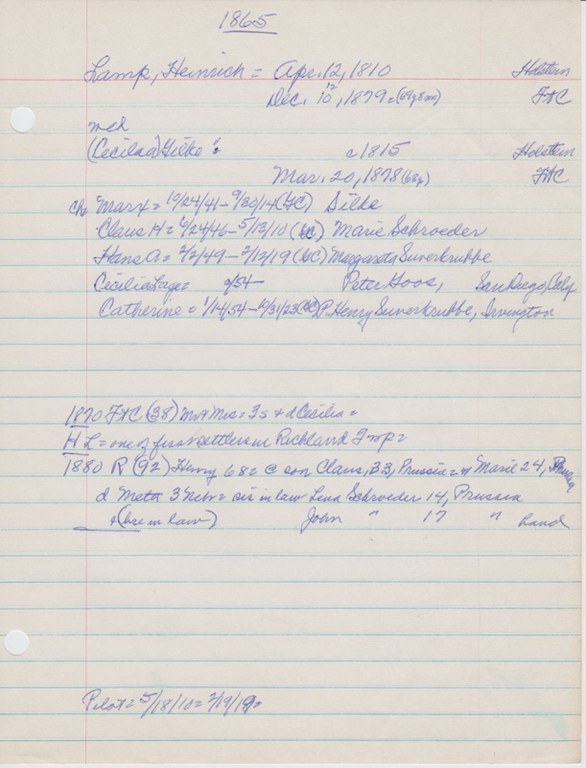 1865
Lamp, Heinrich = Apr. 12, 1810 Holstein
Dec. 10, 1879 = (69y 8m) F+C
md
(Cecilia) Silke c1815 Holstein
Mar. 20, 1878 (63y) F+C
ch Marx = 10/24/41 - 9/30/14 (GC) Silke
Claus H = 6/24/46 - 5/13/10 (GC) Marie Schroeder
Hans A = 2/2/49 - 2/12/19 (GC) Margareta Suverkrubbe
Cecilia 0/54 - Peter Goos, San Diego, Calif
Catherine = 1/14/54 - 10/31/23 (GC) P. Henry Suverkrubbe, Irvington
1870 F+C (38) Mr + Mrs = 3s + d Cecilia =
H L = one of first settlers in Richland Twp =
1880 R (92) Henry 68 = @ son Claus, 33, Prussia = w Marie 24, Prussia
d Meta 3 Nebr = sis in law Lena Schroeder 14, Prussia
+ (bro in law) John " 17 " hand
Pilot = 5/18/10 = 2/19/19 =